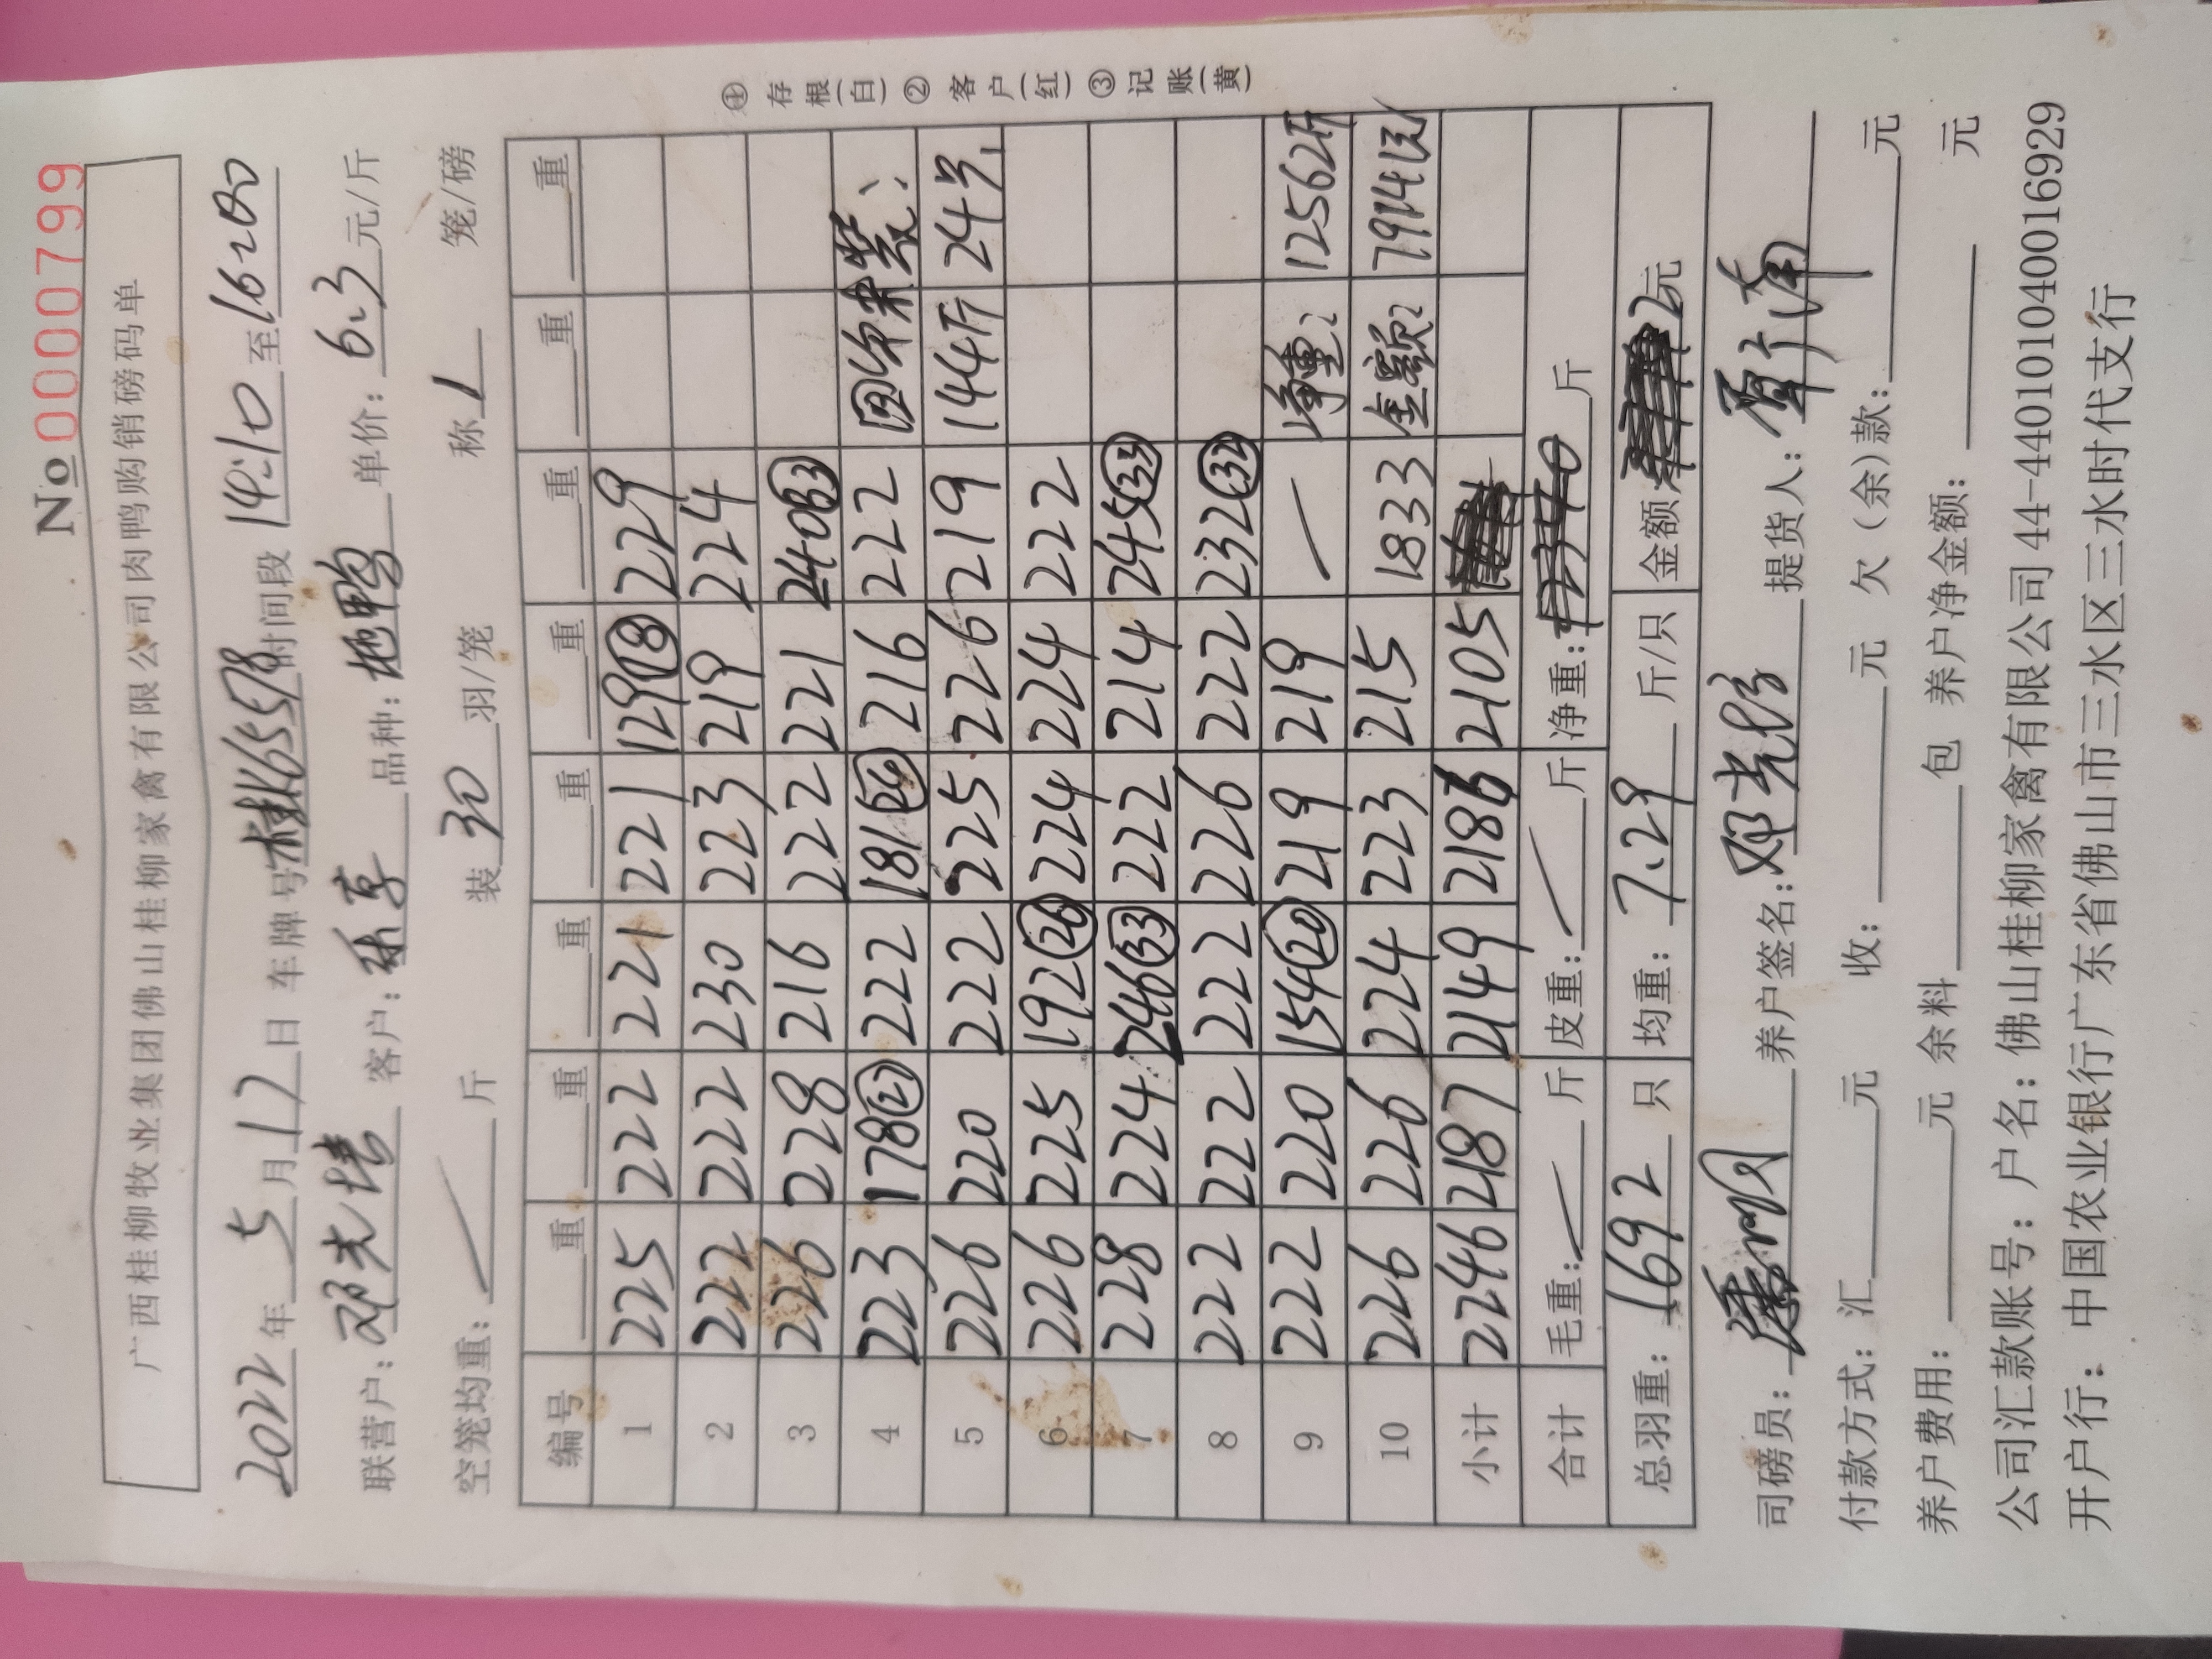 №00000799
广西桂柳牧业集团佛山桂柳家禽有限公司肉鸭购销磅码单
2022年5月12日 车牌号 桂K65578 时间段14:10至16:20
联营户: 邓光 客户: 品种: 鸭 单价: 6.3元/斤
空笼均重: 斤 装30羽/笼 称1笼/磅
编号 重 重 重 重 重 重 重
1 225 222 221 221 129(18) 229
2 222 222 230 223 219 224
3 226 228 216 222 221 240(33)
4 223 178(21) 222 181 216 222 回 笼
5 226 220 222 225 226 219 144斤 24号
6 226 225 192(26) 224 224 222
7 228 224 246(33) 222 214 245(33)
8 222 222 222 226 222 232(32)
9 222 220 154(20) 219 219 净重: 12562斤
10 226 226 224 223 215 1833 金额: 79141元
小计 2246 2187 2149 2186 2105
合计 毛重: 斤 皮重: 斤 净重: 斤
总羽重: 1692只 均重: 7.29斤/只 金额 元
司磅员: 养户签名: 邓光 提货人:
付款方式: 汇 元 收: 元 欠(余)款: 元
养户费用: 元 余料 包 养户净金额: 元
公司汇款账号: 户名: 佛山桂柳家禽有限公司 44-440101040016929
开户行: 中国农业银行广东省佛山市三水区三水时代支行
① 存根(白) ② 客户(红) ③ 记账(黄)